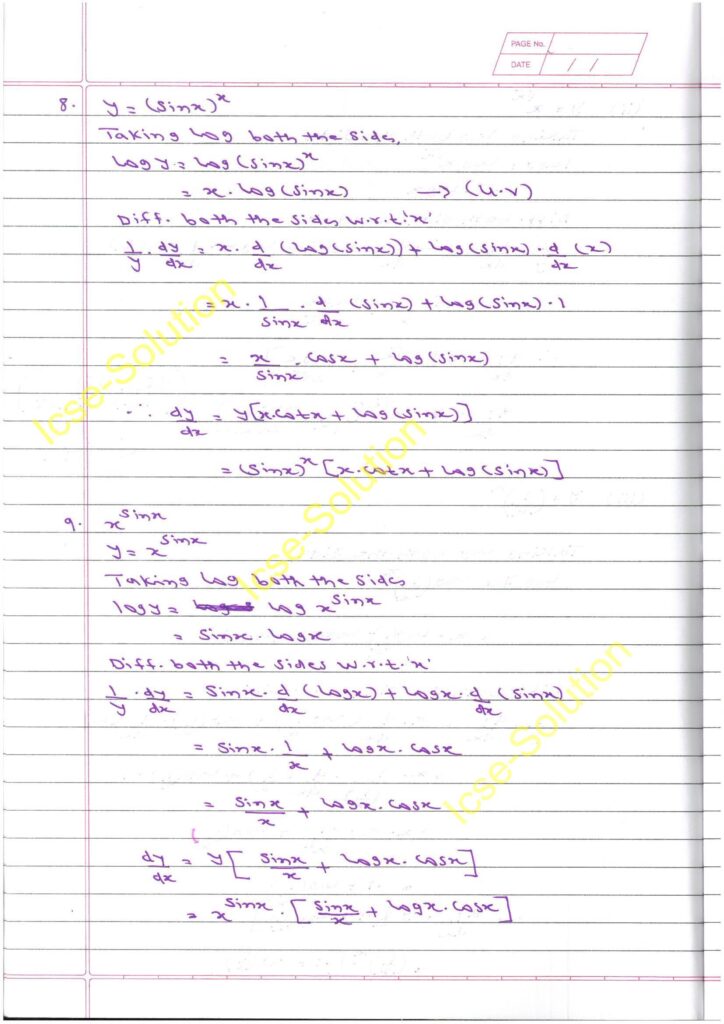 PAGE No.
DATE / /
8. y = (sinx)^x
Taking log both the sides,
log y = log (sinx)^x
= x · log (sinx) → (u·v)
Diff. both the sides w.r.t. 'x'
1/y · dy/dx = x · d/dx (log(sinx)) + log(sinx) · d/dx (x)
= x · 1/sinx · d/dx (sinx) + log(sinx) · 1
= x/sinx · cosx + log(sinx)
∴ dy/dx = y[x·cotx + log(sinx)]
= (sinx)^x [x·cotx + log(sinx)]
9. x^sinx
y = x^sinx
Taking log both the sides
log y = log x^sinx
= sinx · logx
Diff. both the sides w.r.t. 'x'
1/y · dy/dx = sinx · d/dx (logx) + logx · d/dx (sinx)
= sinx · 1/x + logx · cosx
= sinx/x + logx · cosx
dy/dx = y [sinx/x + logx · cosx]
= x^sinx · [sinx/x + logx · cosx]
Icse-Solution
Icse-Solution
Icse-Solution